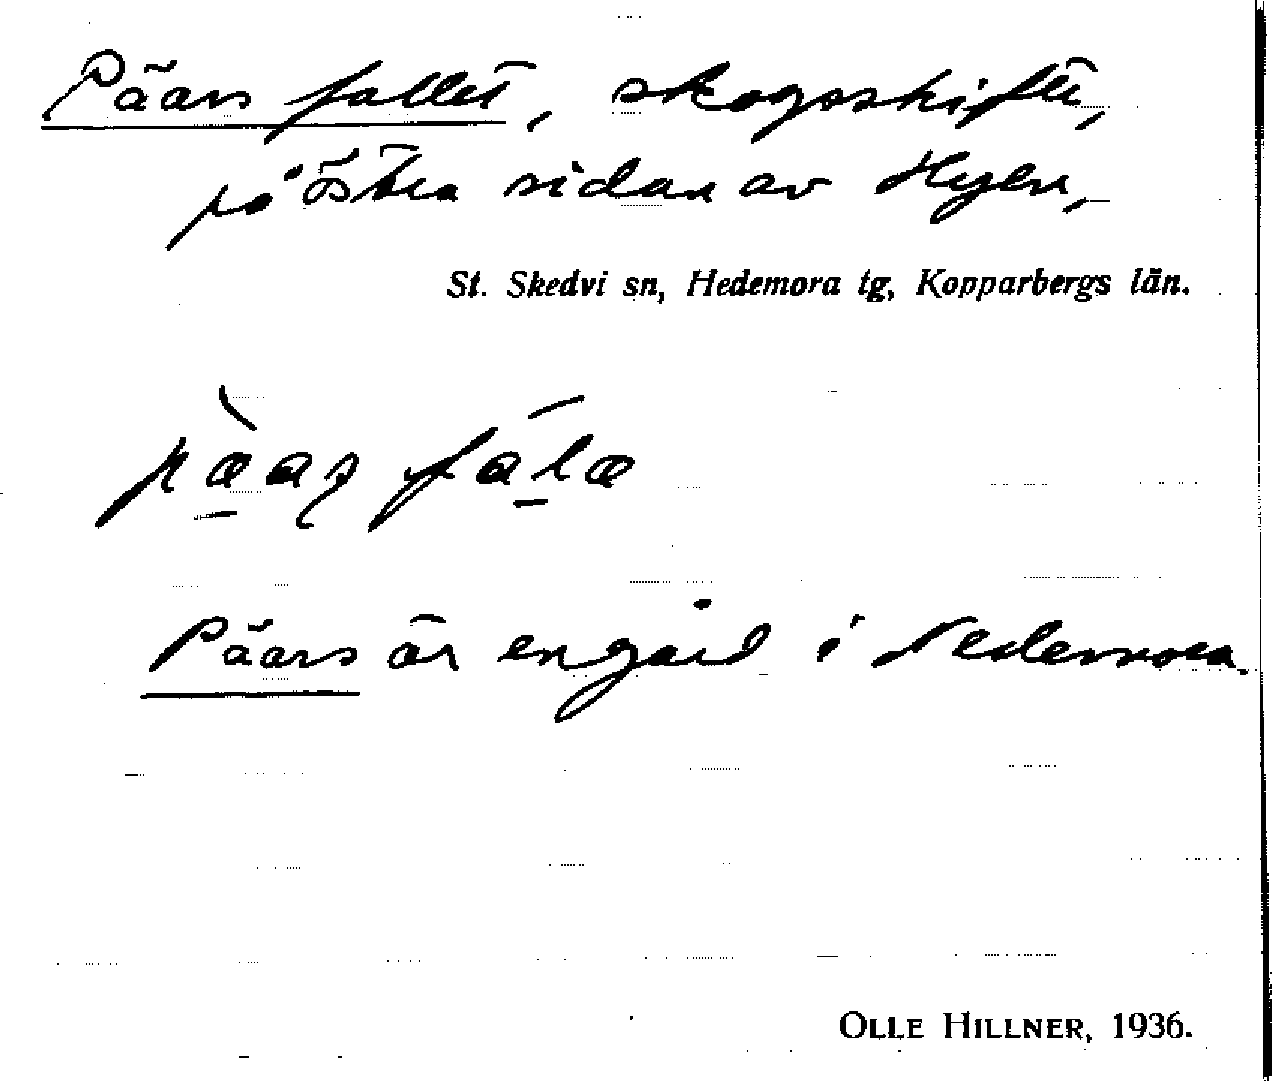 Päars fallet, skogsskifte,
på östra sidan av Hyen,
St. Skedvi sn, Hedemora tg, Kopparbergs län.
pæ̀aʂ fálæ
Päars är en gård i Nedernora.
OLLE HILLNER, 1936.